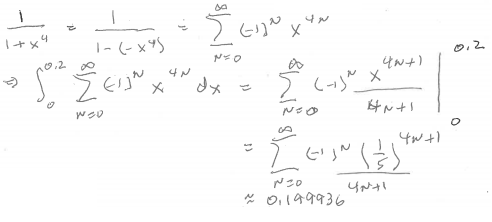 1/(1+x^4) = 1/(1-(-x^4)) = ∑_{N=0}^{∞} (-1)^N x^{4N}
⇒ ∫_0^{0.2} ∑_{N=0}^{∞} (-1)^N x^{4N} dx = ∑_{N=0}^{∞} (-1)^N x^{4N+1}/(4N+1) |_0^{0.2}
= ∑_{N=0}^{∞} (-1)^N (1/5)^{4N+1}/(4N+1)
≈ 0.199936